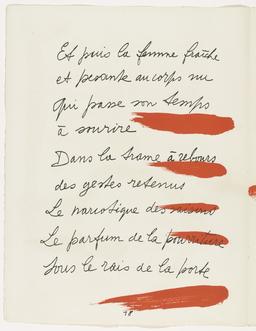 Et puis la femme fraîche
et pesante au corps nu
qui passe son temps
à sourire
Dans la trame à rebours
des gestes retenus
Le narcotique des raisins
Le parfum de la pourriture
Sous le rais de la porte
48